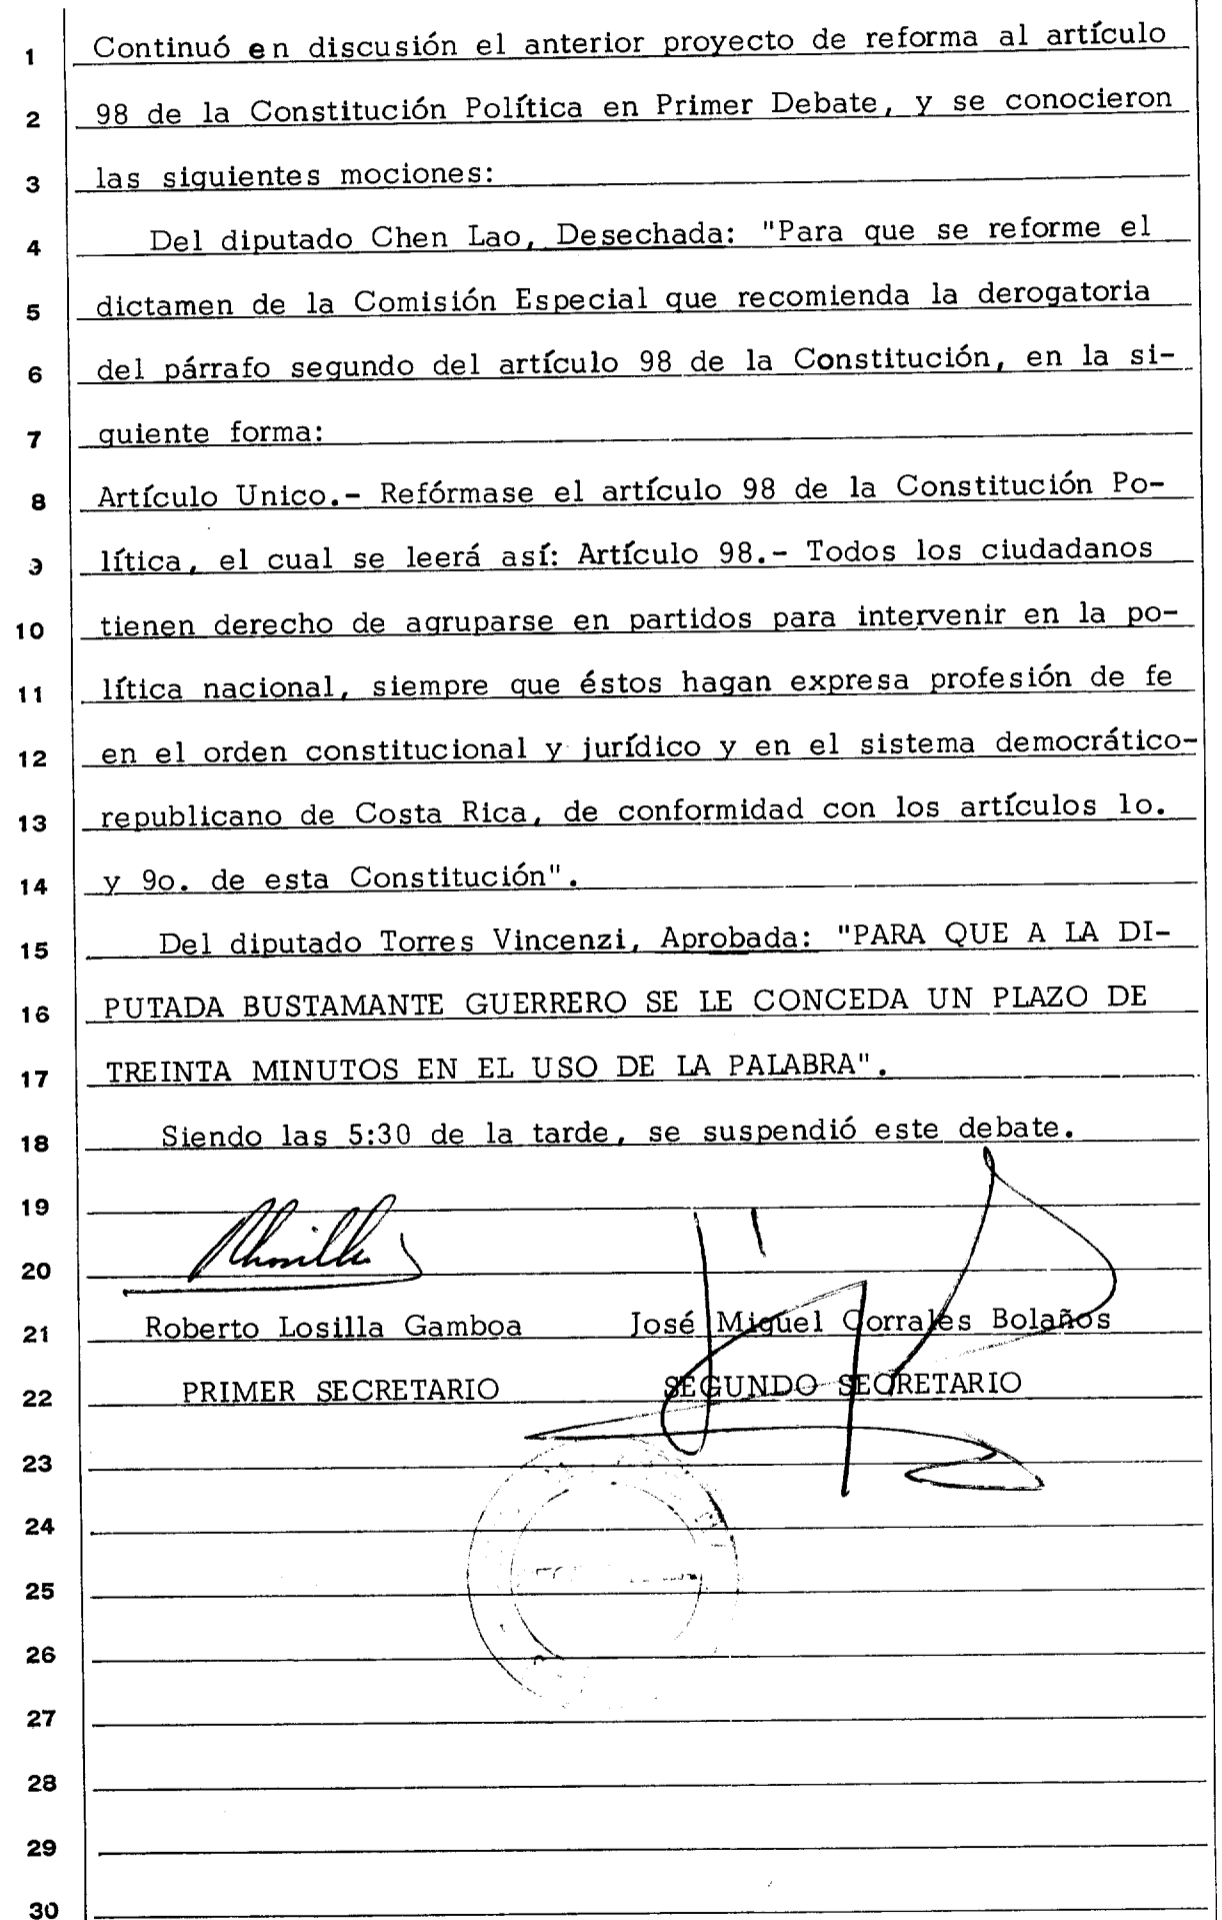 1 Continuó en discusión el anterior proyecto de reforma al artículo
2 98 de la Constitución Política en Primer Debate, y se conocieron
3 las siguientes mociones:
4 Del diputado Chen Lao, Desechada: "Para que se reforme el
5 dictamen de la Comisión Especial que recomienda la derogatoria
6 del párrafo segundo del artículo 98 de la Constitución, en la si-
7 guiente forma:
8 Artículo Unico.- Refórmase el artículo 98 de la Constitución Po-
9 lítica, el cual se leerá así: Artículo 98.- Todos los ciudadanos
10 tienen derecho de agruparse en partidos para intervenir en la po-
11 lítica nacional, siempre que éstos hagan expresa profesión de fe
12 en el orden constitucional y jurídico y en el sistema democrático-
13 republicano de Costa Rica, de conformidad con los artículos 1o.
14 y 9o. de esta Constitución".
15 Del diputado Torres Vincenzi, Aprobada: "PARA QUE A LA DI-
16 PUTADA BUSTAMANTE GUERRERO SE LE CONCEDA UN PLAZO DE
17 TREINTA MINUTOS EN EL USO DE LA PALABRA".
18 Siendo las 5:30 de la tarde, se suspendió este debate.
19
20
21 Roberto Losilla Gamboa José Miguel Corrales Bolaños
22 PRIMER SECRETARIO SEGUNDO SECRETARIO
23
24
25
26
27
28
29
30